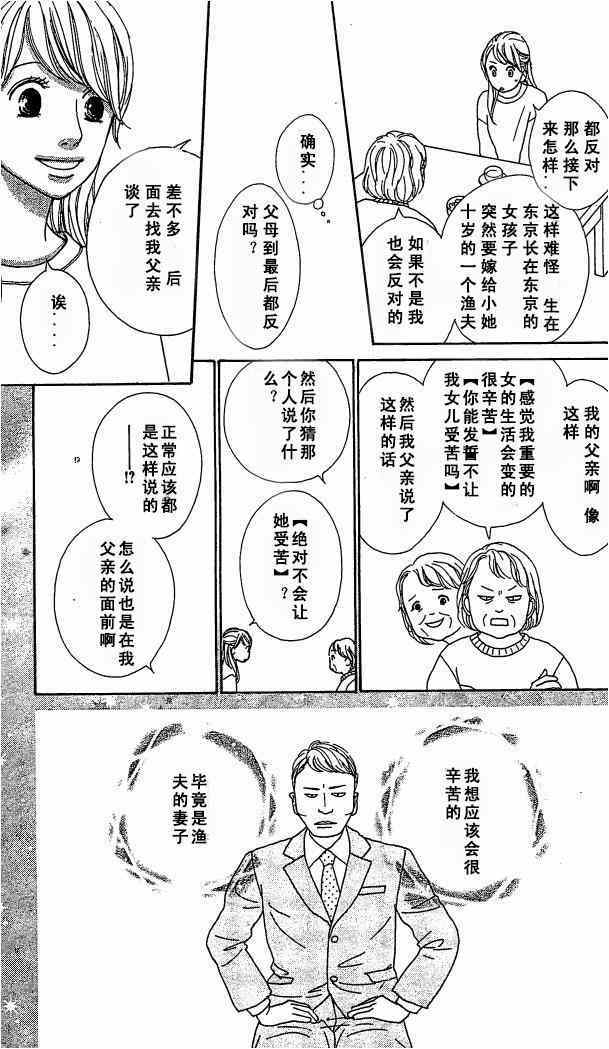 都反对
那么接下
来怎样..
这样难怪 生在
东京长在东京的
女孩子
突然要嫁给小她
十岁的一个渔夫
如果不是我
也会反对的
确实...
父母到最后都反
对吗？
差不多 后
面去找我父亲
谈了
诶....
我的父亲啊 像
这样
【感觉我重要的
女的生活会变的
很辛苦】
【你能发誓不让
我女儿受苦吗】
然后我父亲说了
这样的话
然后你猜那
个人说了什
么？
【绝对不会让
她受苦】？
正常应该都
是这样说的
——!?
怎么说也是在我
父亲的面前啊
我想应该会很
辛苦的
毕竟是渔
夫的妻子